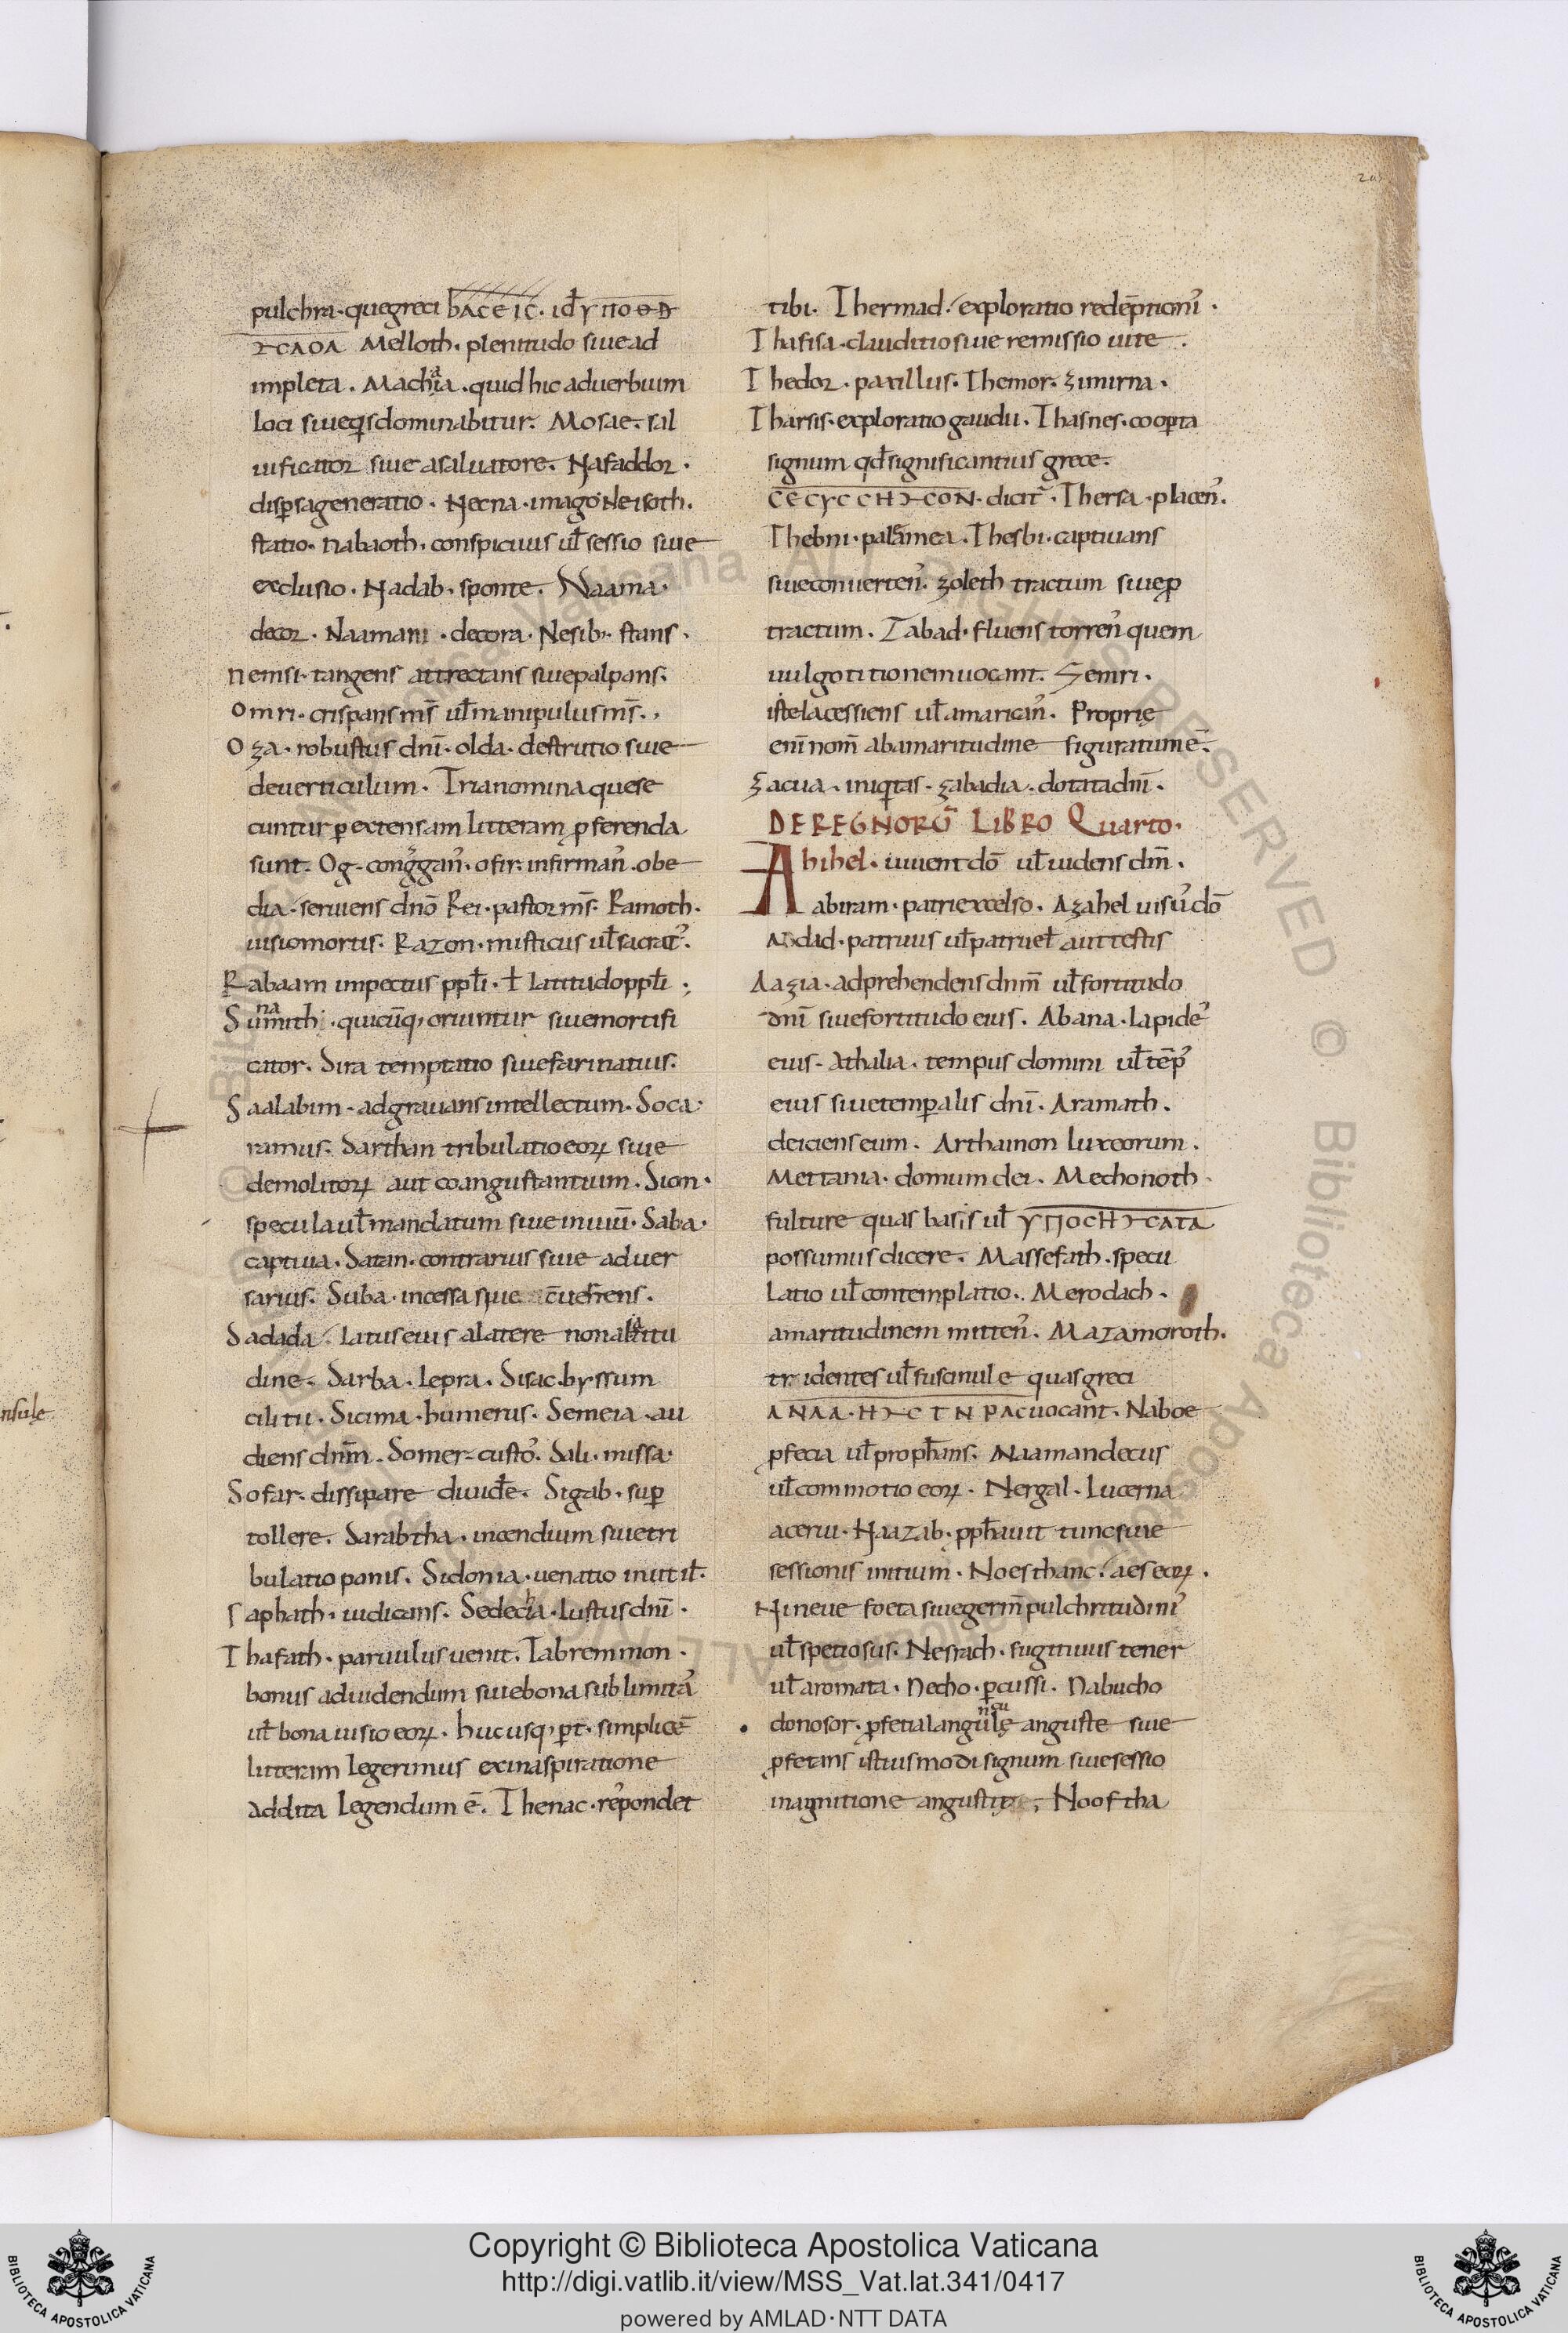 pulchra · que greci bACEIC · id̄ ΥΠΟΘ
Melloth · plenitudo siue ad
impleta . Machia · quid hic aduerbium
loci siue q̄s dominabitur . Mosae · sal
uificator siue a saluatore . Nafaddor ·
disp̄sa generatio · Necna · imago Neisoth ·
statio · Nabaoth · conspicuus ul̄ sessio siue
exclusio · Nadab · sponte . Naama ·
decor · Naamani · decora · Nesib · stans ·
Nemsi · tangens attrectans siue palpans .
Omri · crispans m̄s ul̄ manipulus m̄s . ,
Oza · robustus dn̄i · olda · destrutio siue
deuerticulum . Tria nomina que se
cuntur p̄ extensam litteram p̄ferenda
sunt . Og · cong̉gan̉ · ofir · infirman̉ · obe
dia · seruiens dn̄o Rei · pastor m̄s · Ramoth ·
uisio mortis · Razon · misticus ul̄ sacrat̉ .
Rabaam impectus ppl̄i · ł latitudo ppl̄i ;
Sunamith · quicūq; oriuntur siue mortifi
cator . Sira temptatio siue farinatius .
Saalabim · adgrauans intellectum · Soca ·
ramus . Sarthan tribulatio eoꝝ siue
demolitoꝝ aut coangustantium . Sion ·
specula ul̄ mandatum siue inuiū · Saba ·
captiua . Satan · contrarius siue aduer
sarius . Suba · incessa siue c̄uerrens .
Sadada · latus eius a latere non a latitu
dine . Sarba · lepra . Sisac · byssum
cilitu · Sicima · humerus . Semeia · au
diens dnm̄ . Somer · custỏ . Sali · missa ·
Sofar · dissipare diuid̄e . Sigab · sup̄
tollere . Sarabtha · incendium siue tri
bulatio panis . Sidonia · uenatio inutil̄ ·
Saphath · iudicans . Sedecia · iustus dn̄i ·
Thafath · paruulus uenit . Tabremmon ·
bonus ad uidendum siue bona sublimitả
ul̄ bona uisio eoꝝ · hucusq; p̄ t · simplicē
litteram legerimus exin aspiratione
addita legendum ē . Thenac · rẻpondet
tibi . Thermad · exploratio redēptionỉ ·
Thafisa · clauditio siue remissio uite .
Thedor · paxillus · Themor · zimirna ·
Tharsis · exploratio gaudii . Thasnes · coop̄ta
signum qd̄ significantius grece .
dicit̉ · Thersa · placen̉ .
Thebni · palea mea . Thesbi · captiuans
siue conuerten̉ . zoleth tractum siue p̄
tractum . Zabad · fluens torren̉ quem
uulgo titionem uocant . Semri ·
iste lacessiens ul̄ amarican̉ . Proprię
eni̅ nom̄ ab amaritudine figuratum ē .
Zacua · iniq̄tas · zabadia · dotata dn̄i ·
DE REGNORŪ LIBRO Quarto ·
Ahihel · uiuent dō ul̄ uidens dm̄ .
abiram · patri excelso . Azahel uisủ dō
Addad · patruus ul̄ patruel̄ aut testis
Aazia · adprehendens dnm̄ ul̄ fortitudo
dn̄i siue fortitudo eius . Abana · lapidẻ
eius · Athalia · tempus domini ul̄ tēp̉
eius siue temp̄alis dn̄i . Aramath ·
deiciens eum . Arthainon luxeorum .
Mettania · domum dei . Mechonoth ·
fulture quas basis ul̄ ΥΠΟCΗCΑΤΑ
possumus dicere . Massefath · specu
latio ul̄ contemplatio . Merodach ·
amaritudinem mitten̉ . Mazamoroth ·
tridentes ul̄ fuscinule quas greci
uocant . Naboe
p̄fecia ul̄ proph̄ans . Naaman decus
ul̄ commotio eoꝝ . Nergal · lucerna
acerui · Naazab · pph̄auit tunc siue
sessionis initium · Noesthanc · aes eoꝝ .
Nineue foeta siue germ̄ pulchritudinỉ
ul̄ spetiosus . Nesrach · fugitiuus tener
ul̄ aromata · Necho · p̄cussi . Nabucho
donosor · p̄fetia langunculę anguste siue
p̄fetans istius modi signum siue sessio
in agnitione angustię ; Nooftha
Copyright © Biblioteca Apostolica Vaticana
http://digi.vatlib.it/view/MSS_Vat.lat.341/0417
powered by AMLAD·NTT DATA